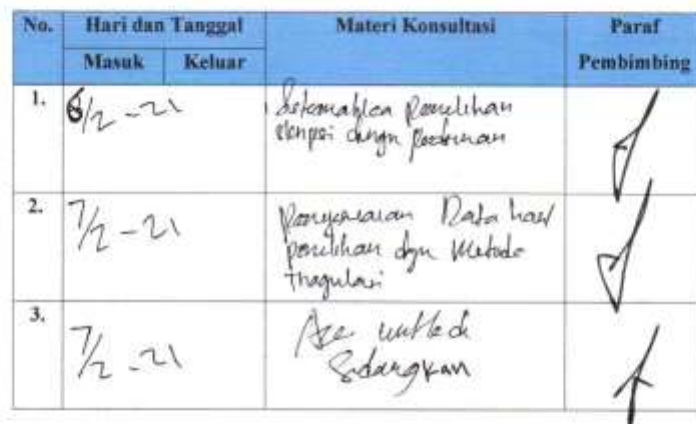 No. Hari dan Tanggal Materi Konsultasi Paraf
Masuk Keluar Pembimbing
1. 6/2 - 21 Sistematika Penelitian
skripsi dengn pedoman
2. 7/2 - 21 Penyesuaian Data hasil
penelitian dgn Metode
triagulasi
3. 7/2 - 21 Acc untuk di
Sidangkan